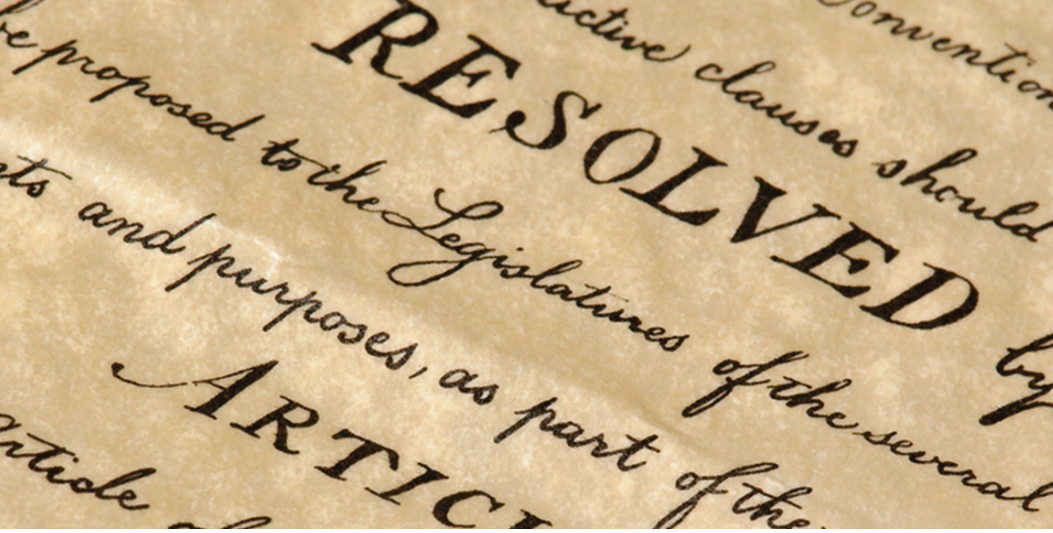 Convention
clauses should
RESOLVED by
be proposed to the Legislatures of the several
and purposes, as part of the
ARTIC
article